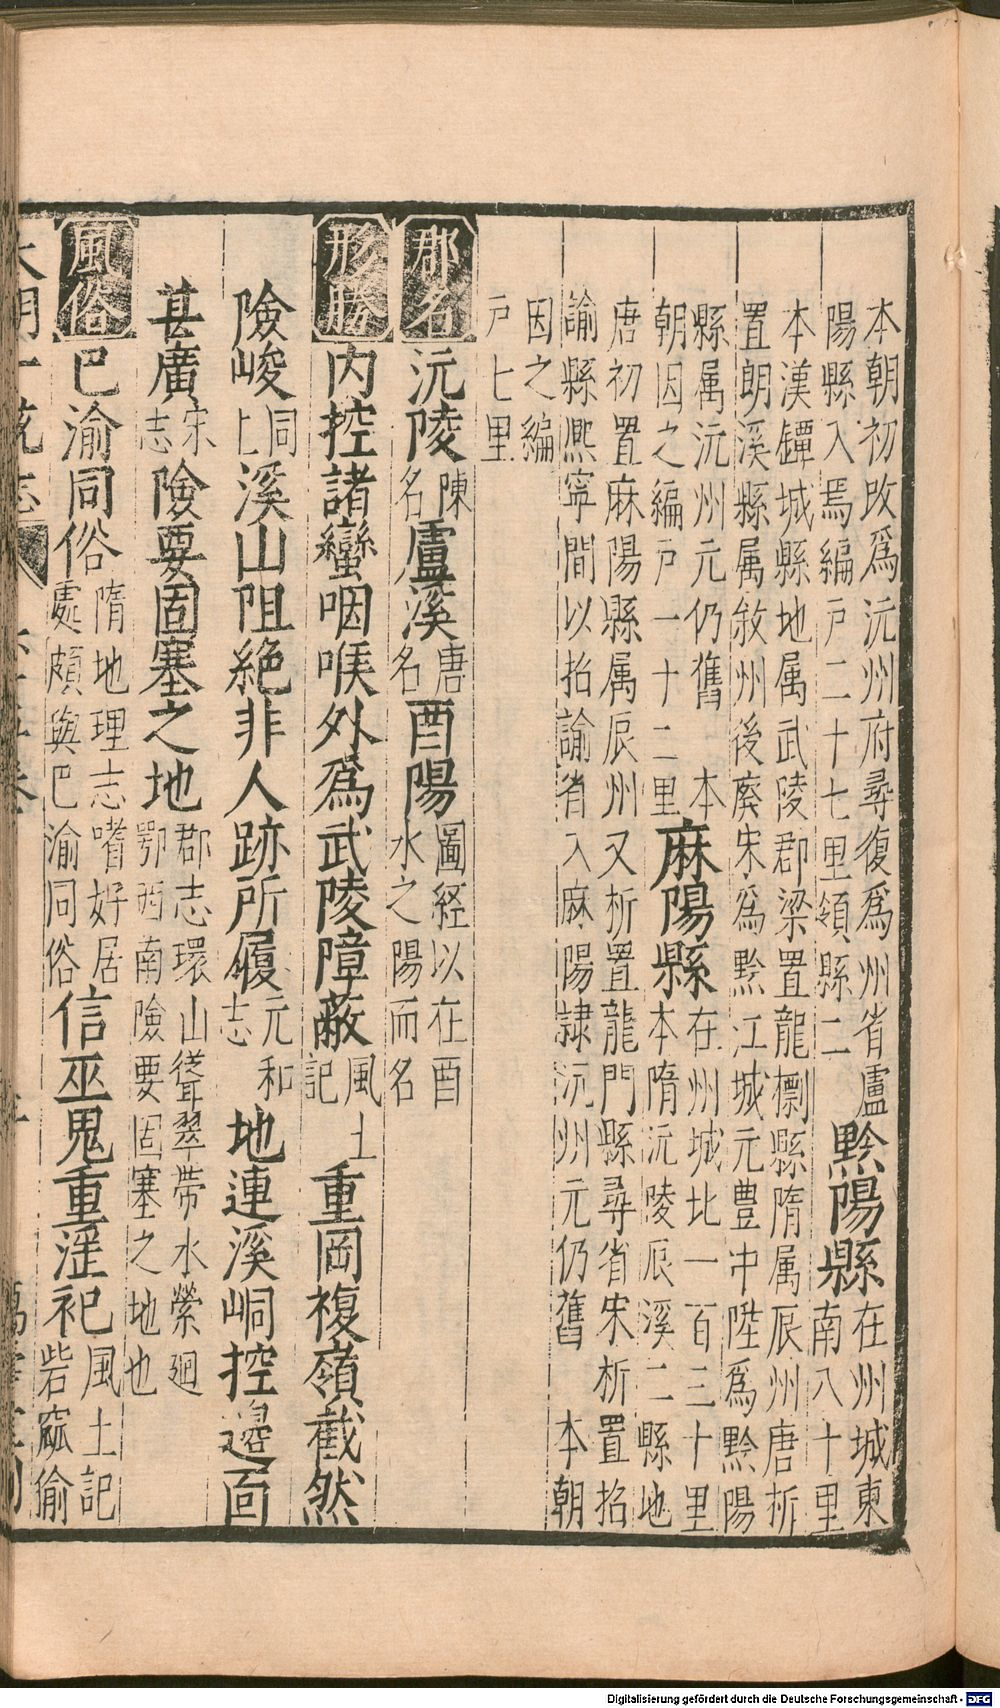 本朝初改爲沅州府尋復爲州省盧
陽縣入焉編戶二十七里領縣二
黔陽縣
在州城東
南八十里
本漢鐔城縣地属武陵郡梁置龍檦縣隋属辰州唐析
置朗溪縣属敘州後廢宋爲黔江城元豊中陞爲黔陽
縣属沅州元仍舊 本
朝因之編戶一十二里
麻陽縣
在州城北一百三十里
本隋沅陵辰溪二縣地
唐初置麻陽縣属辰州又析置龍門縣尋省宋析置招
諭縣熈寧間以招諭省入麻陽隷沅州元仍舊 本朝
因之編
戶七里
郡名 沅陵
陳
名
盧溪
唐
名
酉陽
圖経以在酉
水之陽而名
形勝 內控諸蠻咽喉外爲武陵障蔽
風土
記
重岡複嶺截然
險峻
同
上
溪山阻絶非人跡所履
元和
志
地連溪峒控邊面
甚廣
宋
志
險要固塞之地
郡志環山聳翠帶水縈廻
鄂西南險要固塞之地也
風俗 巴渝同俗
隋地理志嗜好居
處頗與巴渝同俗
信巫鬼重淫祀
風土記
砦窳偷
大明一統志
Digitalisierung gefördert durch die Deutsche Forschungsgemeinschaft - DFG